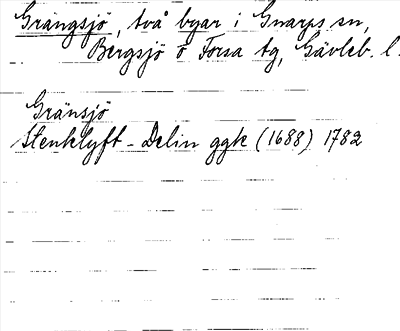 Grängsjö, två byar i Gnarps sn,
Bergsjö o Forsa tg, Gävleb. l.
Gränsjö
Stenklyft - Delin ggk (1688) 1782